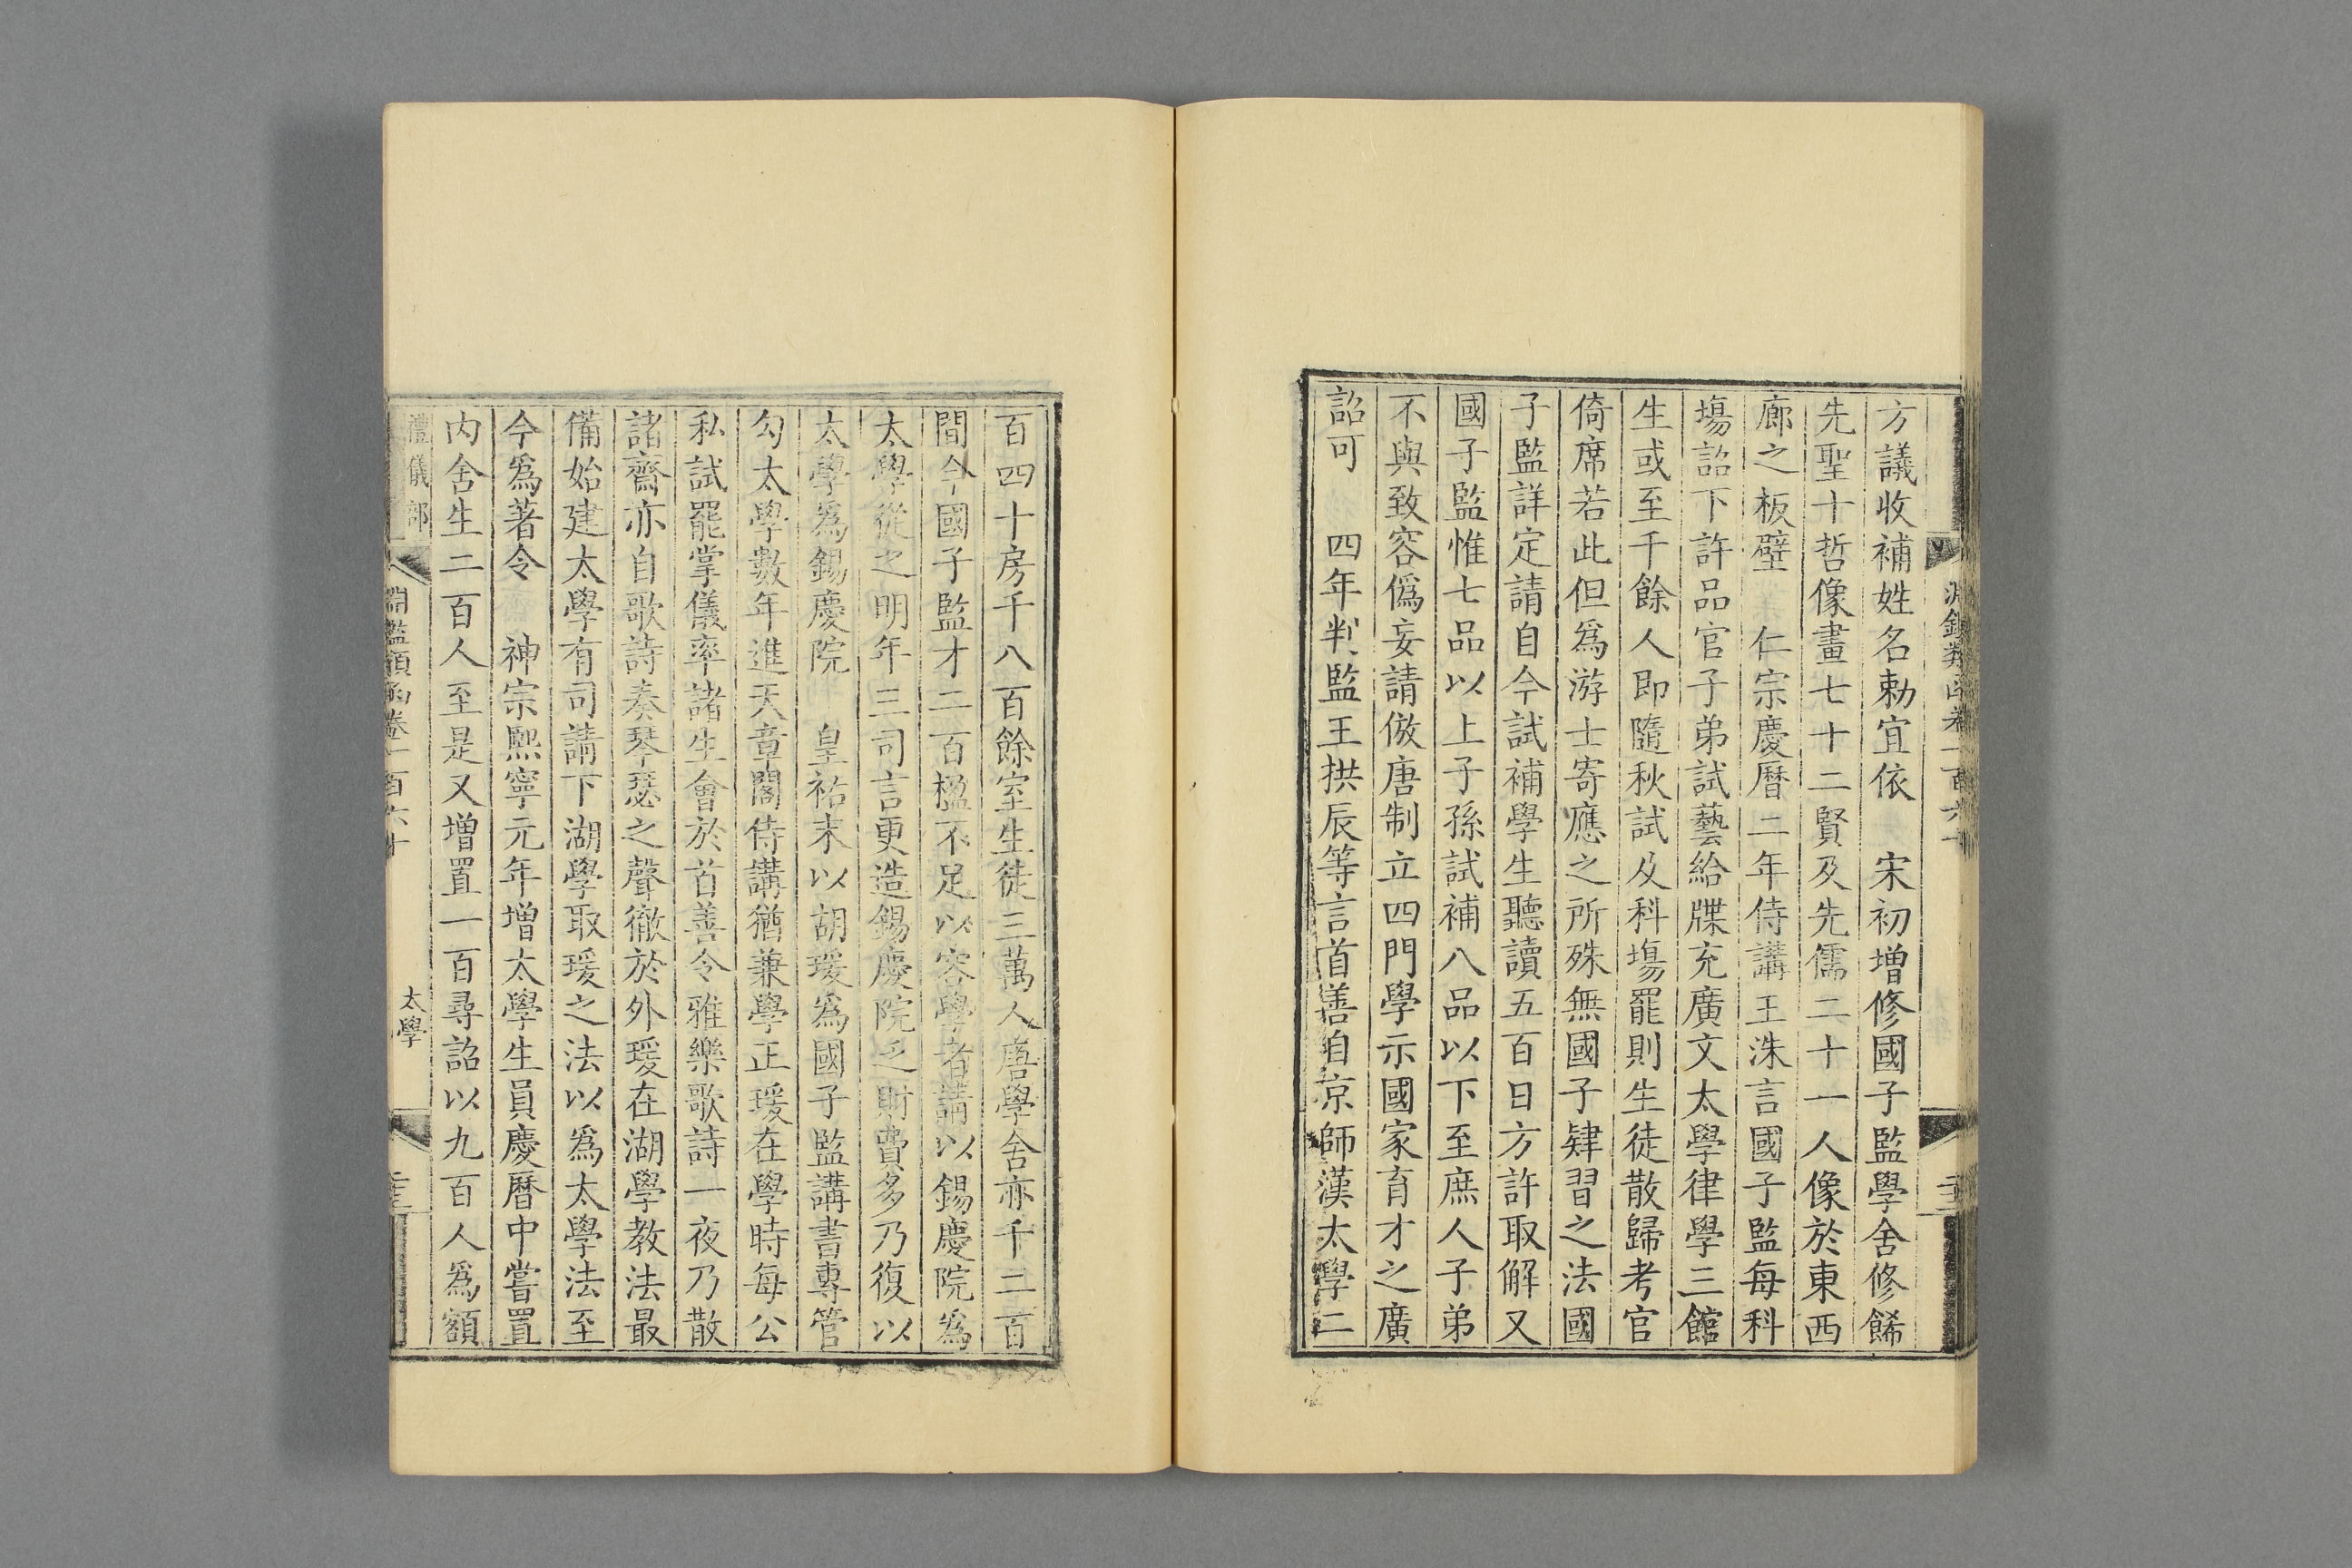 方議收補姓名勅宜依　宋初增修國子監學舍修餙
先聖十哲像畫七十二賢及先儒二十一人像於東西
廊之板壁　仁宗慶曆二年侍講王洙言國子監每科
塲詔下許品官子弟試藝給牒充廣文太學律學三館
生或至千餘人即隨秋試及科塲罷則生徒散歸考官
倚席若此但爲游士寄應之所殊無國子肄習之法國
子監詳定請自今試補學生聽讀五百日方許取解又
國子監惟七品以上子孫試補八品以下至庶人子弟
不與致容僞妄請倣唐制立四門學示國家育才之廣
詔可　四年判監王拱辰等言首善自京師漢太學二
百四十房千八百餘室生徒三萬人唐學舍亦千二百
間今國子監才二百楹不足以容學者請以錫慶院爲
太學從之明年三司言更造錫慶院乏財費多乃復以
太學爲錫慶院　皇祐末以胡瑗爲國子監講書專管
勾太學數年進天章閣侍講猶兼學正瑗在學時每公
私試罷掌儀率諸生會於首善令雅樂歌詩一夜乃散
諸齋亦自歌詩奏琴瑟之聲徹於外瑗在湖學教法最
備始建太學有司請下湖學取瑗之法以爲太學法至
今爲著令　神宗熙寧元年增太學生員慶曆中嘗置
內舍生二百人至是又增置一百尋詔以九百人爲額
禮儀部
淵鑑類函卷一百六十
太學